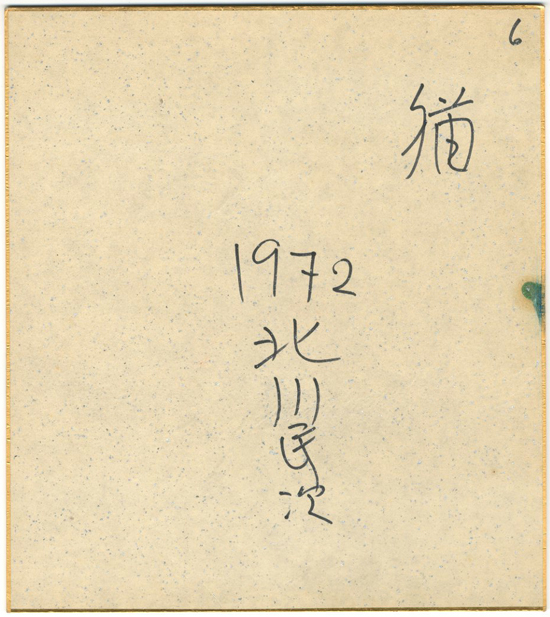 6
猫
1972
北
川
民
次